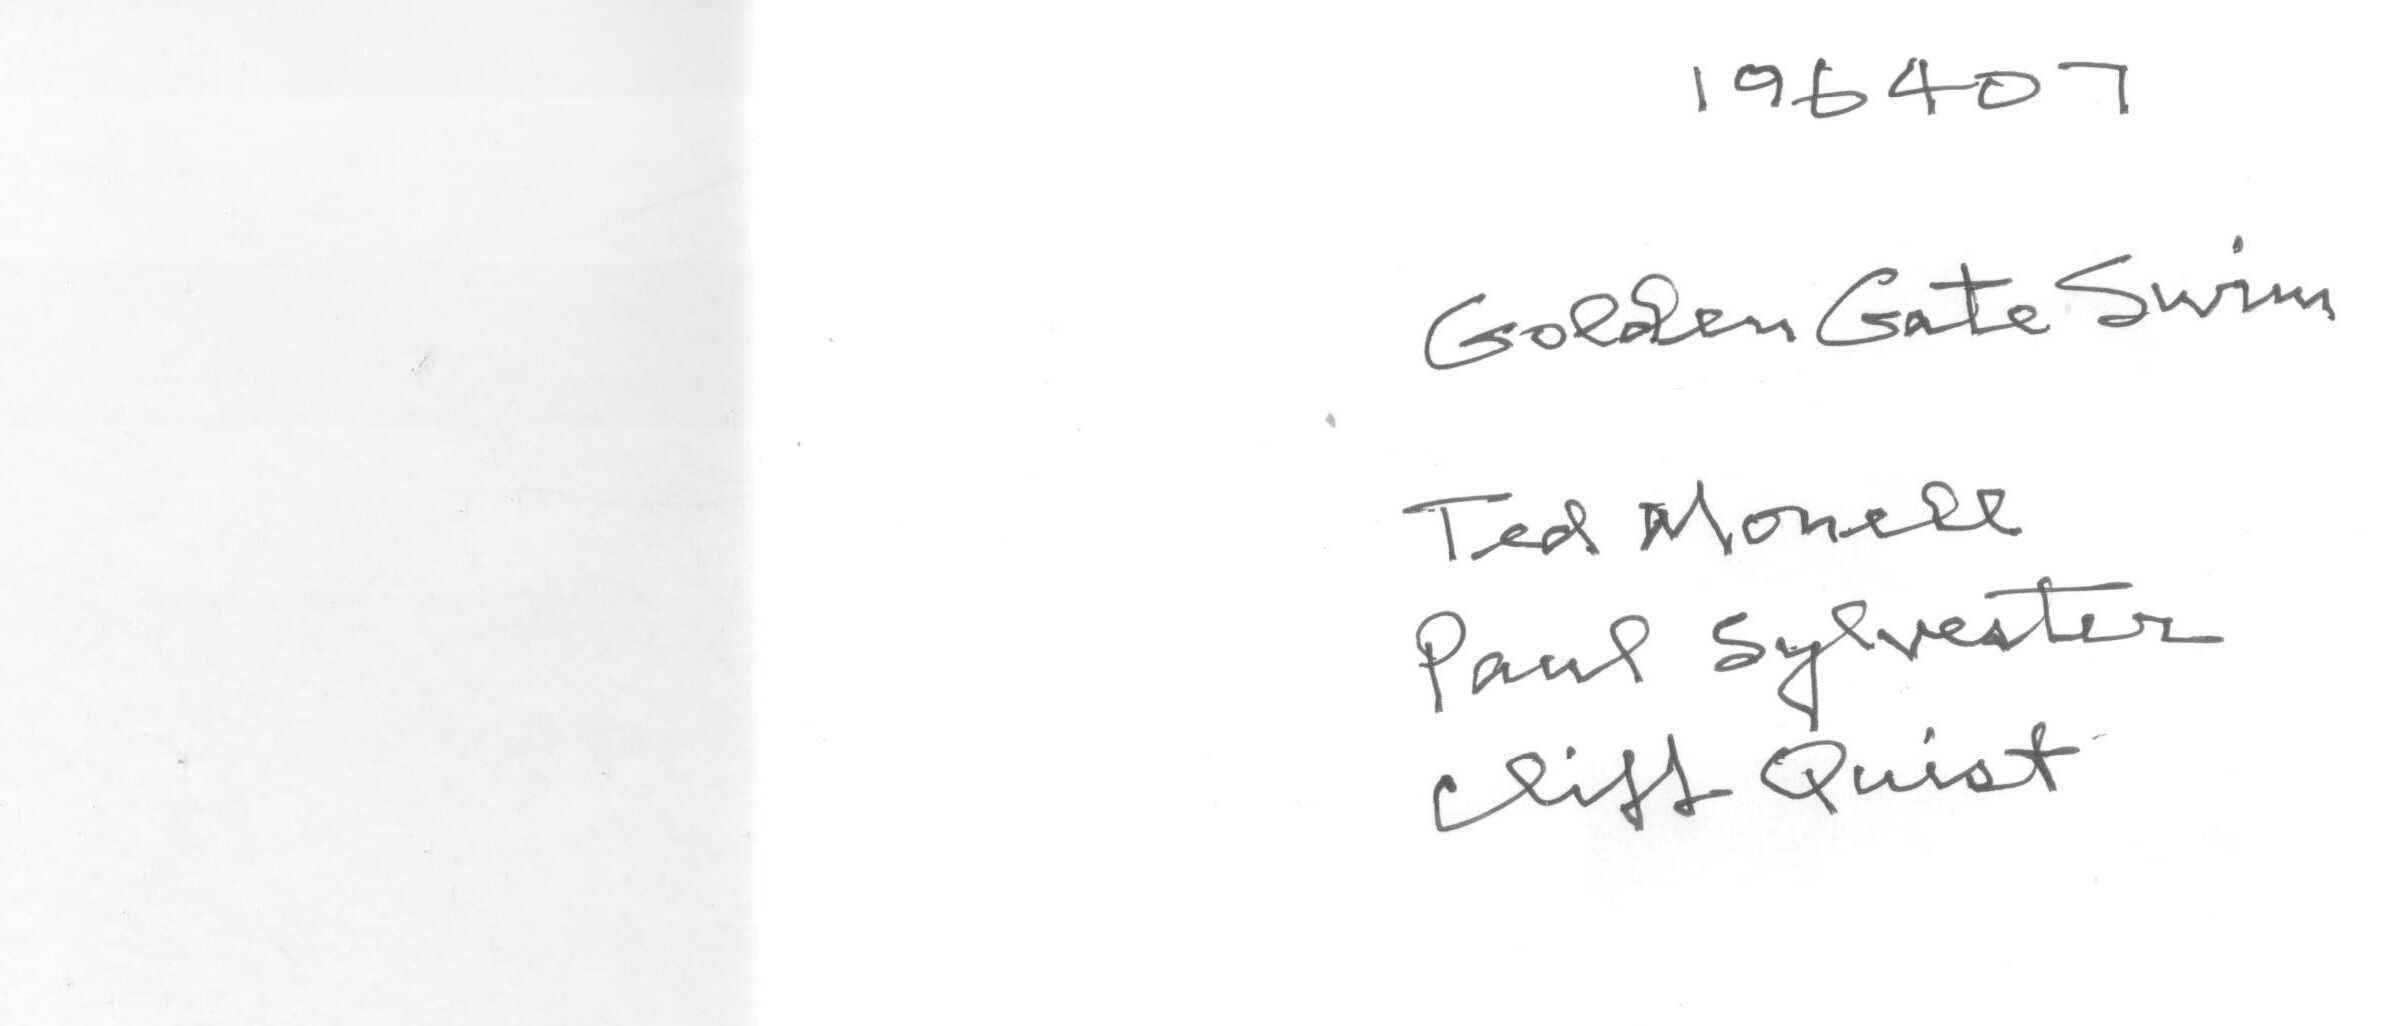 196407
Golden Gate Swim
Ted Monell
Paul Sylvester
Cliff Quist